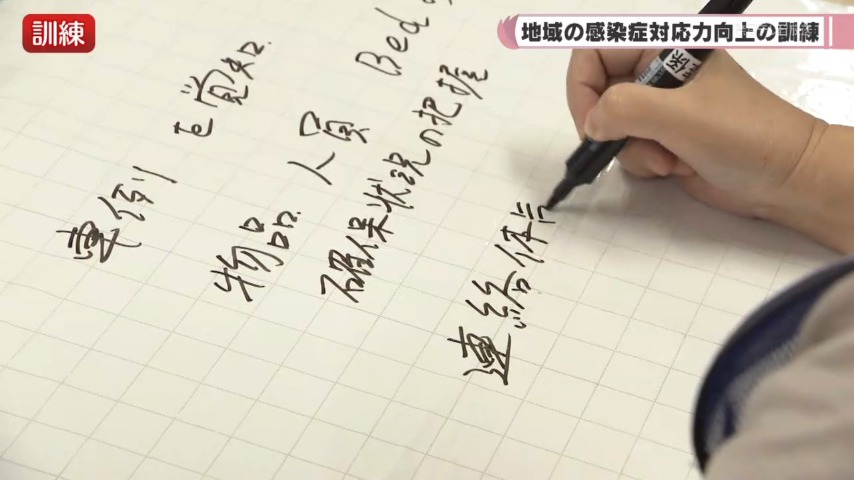 訓練
地域の感染症対応力向上の訓練
事例を覚知
物品 人員 Bed
確保状況の把握
連絡体